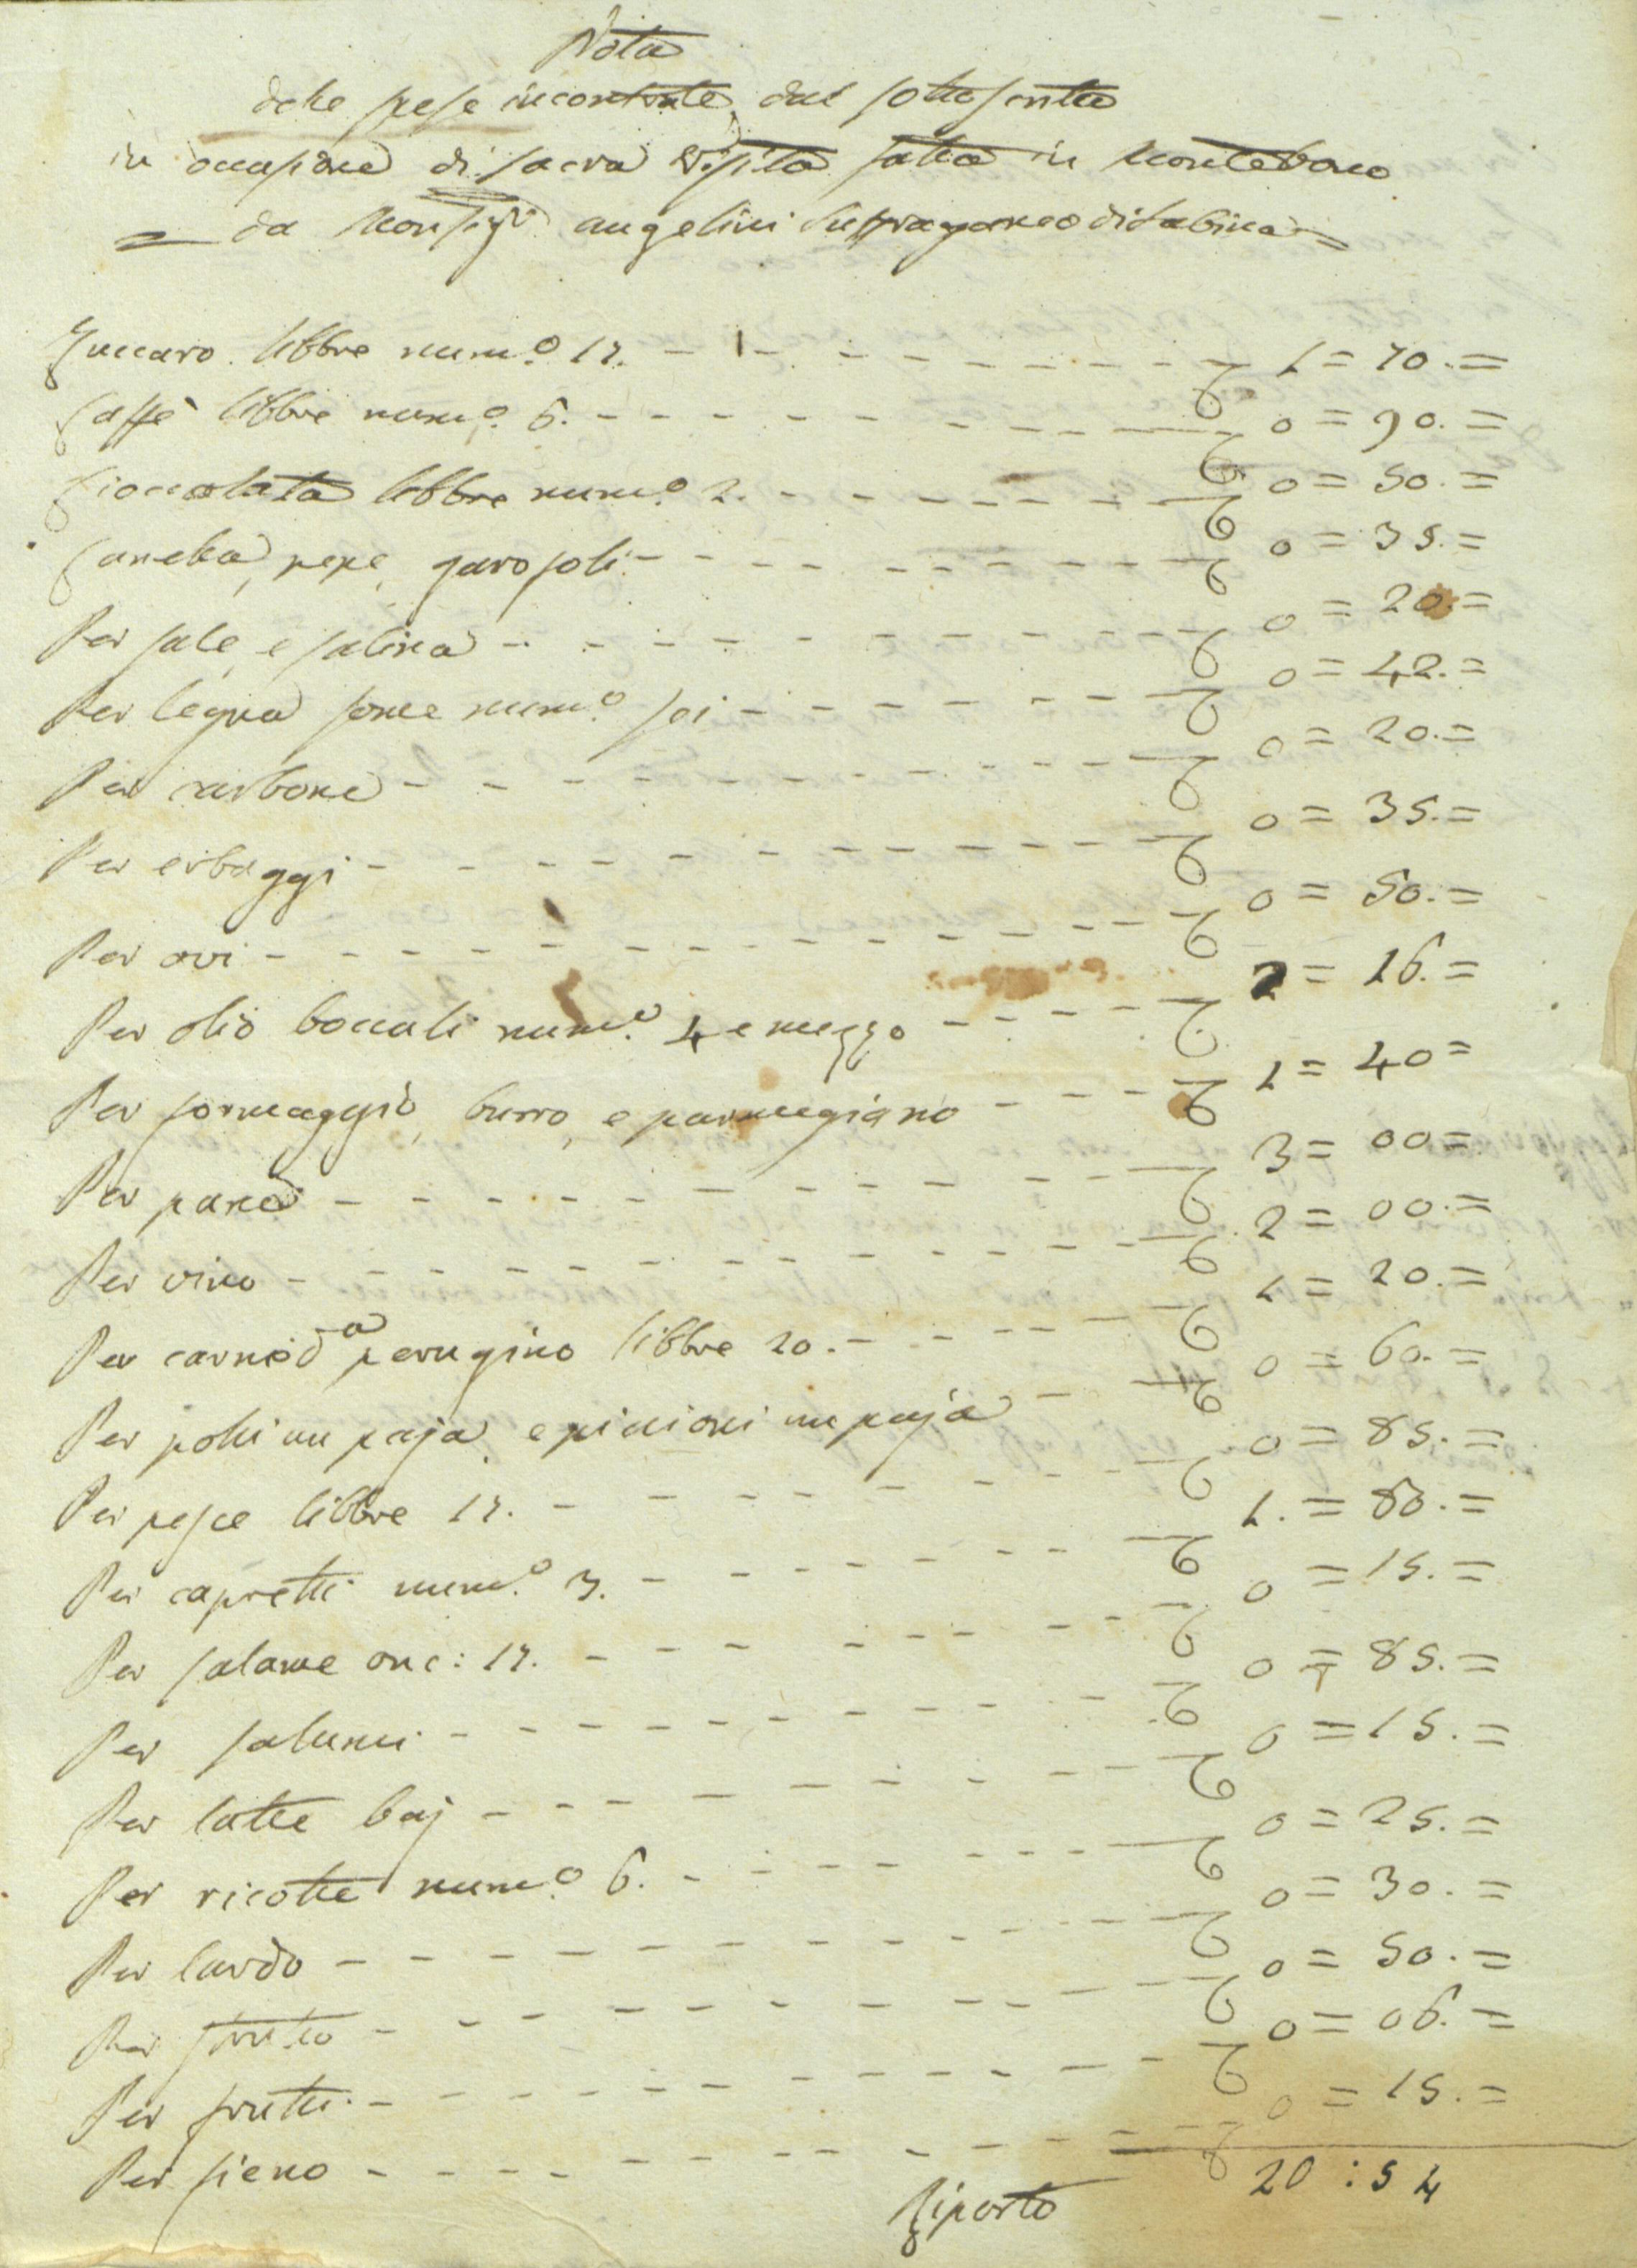 Nota
delle spese incontrate dal sottoscritto
in occasione di sacra visita fatta in Montebono
= da Monsig.r Angelini Suffraganeo di Sabina =
Zuccaro libbre num.o 17. - - - - - - - - 1 = 70. =
Caffè libbre num.o 6. - - - - - - - - 0 = 90. =
Cioccolata libbre num.o 2. - - - - - - - - 0 = 50. =
Canella, pepe, garofoli - - - - - - - - 0 = 35. =
Per sale, e salina - - - - - - - - 0 = 20. =
Per legna some num.o sei - - - - - - - - 0 = 42. =
Per carbone - - - - - - - - 0 = 20. =
Per erbaggi - - - - - - - - 0 = 35. =
Per ovi - - - - - - - - 0 = 50. =
Per olio boccali num.o 4 e mezzo - - - - 2 = 16. =
Per formaggio, burro, e parmegiano - - - - 1 = 40 =
Per pane - - - - - - - - 3 = 00 =
Per vino - - - - - - - - 2 = 00. =
Per carne da perugino libbre 20. - - - - 1 = 20. =
Per polli un paja, e piccioni un paja - - 0 = 60. =
Per pesce libbre 17. - - - - - - - - 0 = 85. =
Per capretti num.o 3. - - - - - - - - 1. = 80. =
Per salame onc: 17. - - - - - - - - 0 = 15. =
Per salumi - - - - - - - - 0 = 85. =
Per latte baj - - - - - - - - 0 = 15. =
Per ricotte num.o 6. - - - - - - - - 0 = 25. =
Per lardo - - - - - - - - 0 = 30. =
Per strutto - - - - - - - - 0 = 50. =
Per frutti - - - - - - - - 0 = 06. =
Per fieno - - - - - - - - 0 = 15. =
Riporto 20 : 54